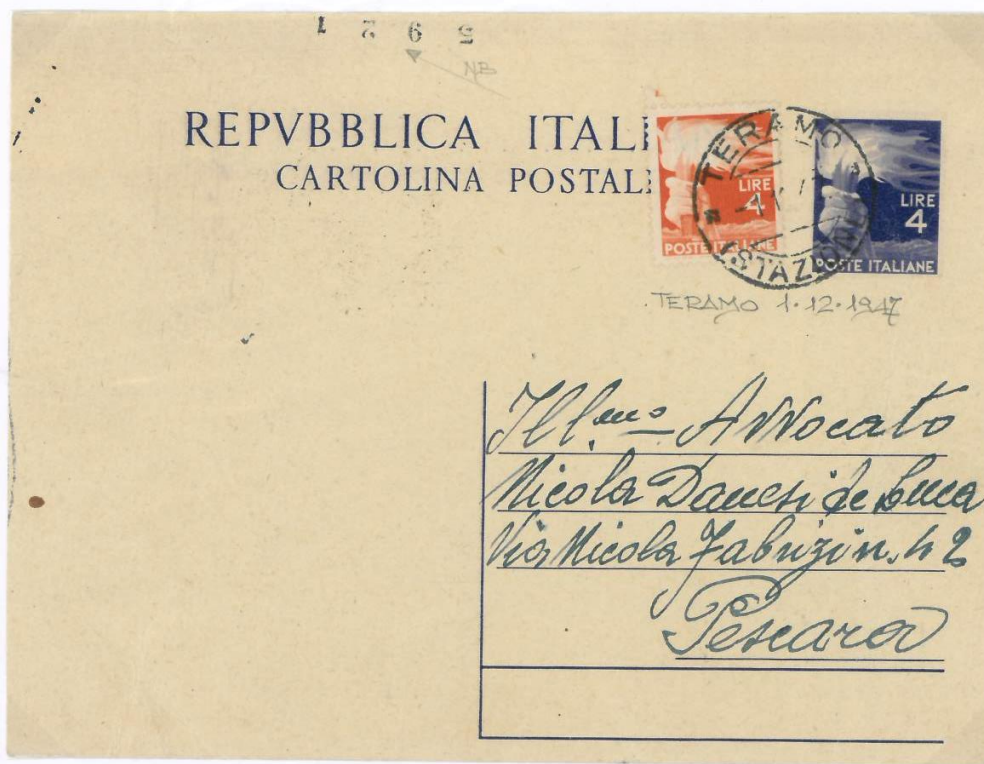 5 9 2 1
NB
REPVBBLICA ITALI
CARTOLINA POSTAL
LIRE
4
POSTE ITALIANE
TERAMO
-1
(STAZIONE)
LIRE
4
POSTE ITALIANE
TERAMO 1.12.1947
Ill.mo Avvocato
Nicola Danesi de Luca
Via Nicola Fabrizi n. 42
Pescara